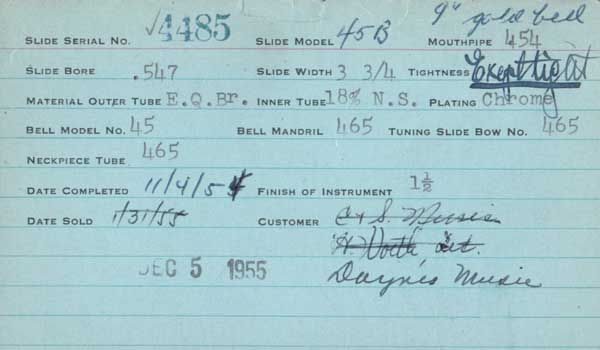 9" gold bell
SLIDE SERIAL NO. √4485 SLIDE MODEL 45B MOUTHPIPE 454
SLIDE BORE .547 SLIDE WIDTH 3 3/4 TIGHTNESS Except tight
MATERIAL OUTER TUBE E.Q.Br. INNER TUBE 18% N.S. PLATING Chrome
BELL MODEL NO. 45 BELL MANDRIL 465 TUNING SLIDE BOW NO. 465
NECKPIECE TUBE 465
DATE COMPLETED 11/4/54 FINISH OF INSTRUMENT 1½
DATE SOLD 1/31/55 CUSTOMER C & S. Music
Worth
DEC 5 1955 Dayne's Music